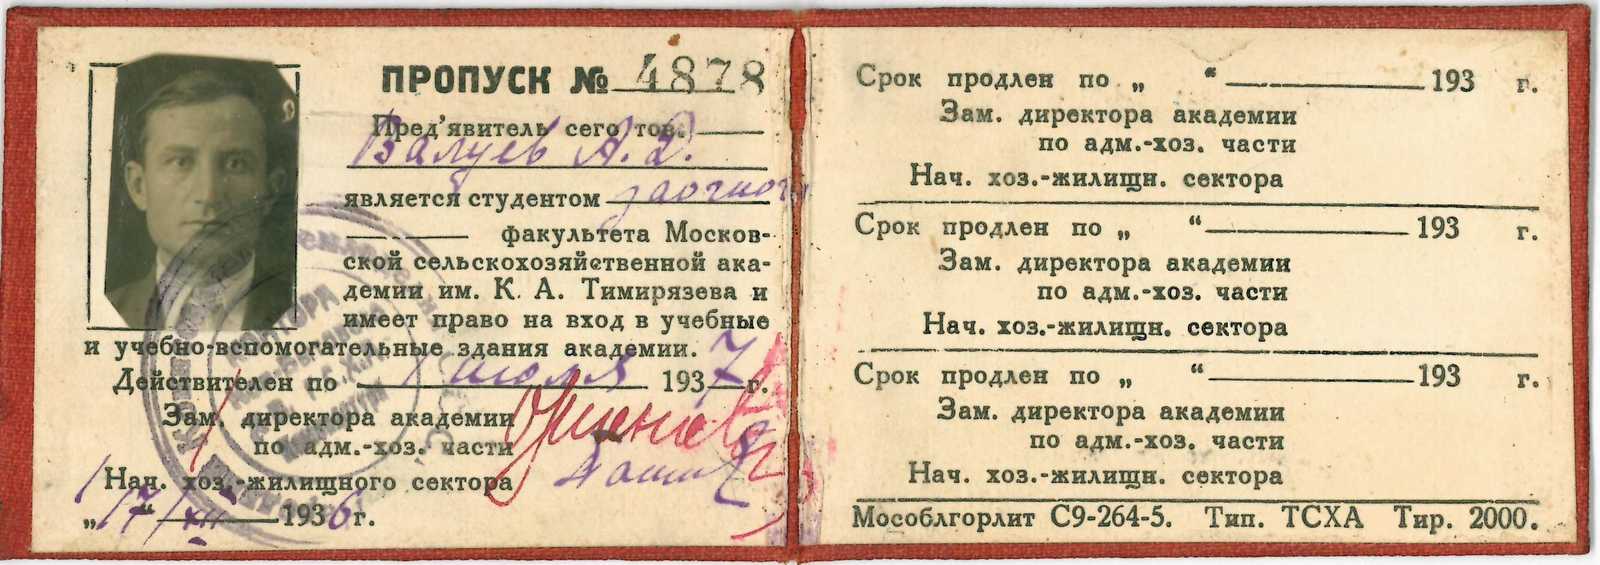 ПРОПУСК № 4878
Пред'явитель сего тов.
Валуев А. Д.
является студентом заочного
факультета Москов-
ской сельскохозяйственной ака-
демии им. К. А. Тимирязева и
имеет право на вход в учебные
и учебно-вспомогательные здания академии.
Действителен по 1 июля 1937 г.
Зам. директора академии
по адм.-хоз. части
Нач. хоз.-жилищного сектора
„ 17 “ XII 1936 г.
Срок продлен по „ “ 193 г.
Зам. директора академии
по адм.-хоз. части
Нач. хоз.-жилищн. сектора
Срок продлен по „ “ 193 г.
Зам. директора академии
по адм.-хоз. части
Нач. хоз.-жилищн. сектора
Срок продлен по „ “ 193 г.
Зам. директора академии
по адм.-хоз. части
Нач. хоз.-жилищн. сектора
Мособлгорлит С9-264-5. Тип. ТСХА Тир. 2000.